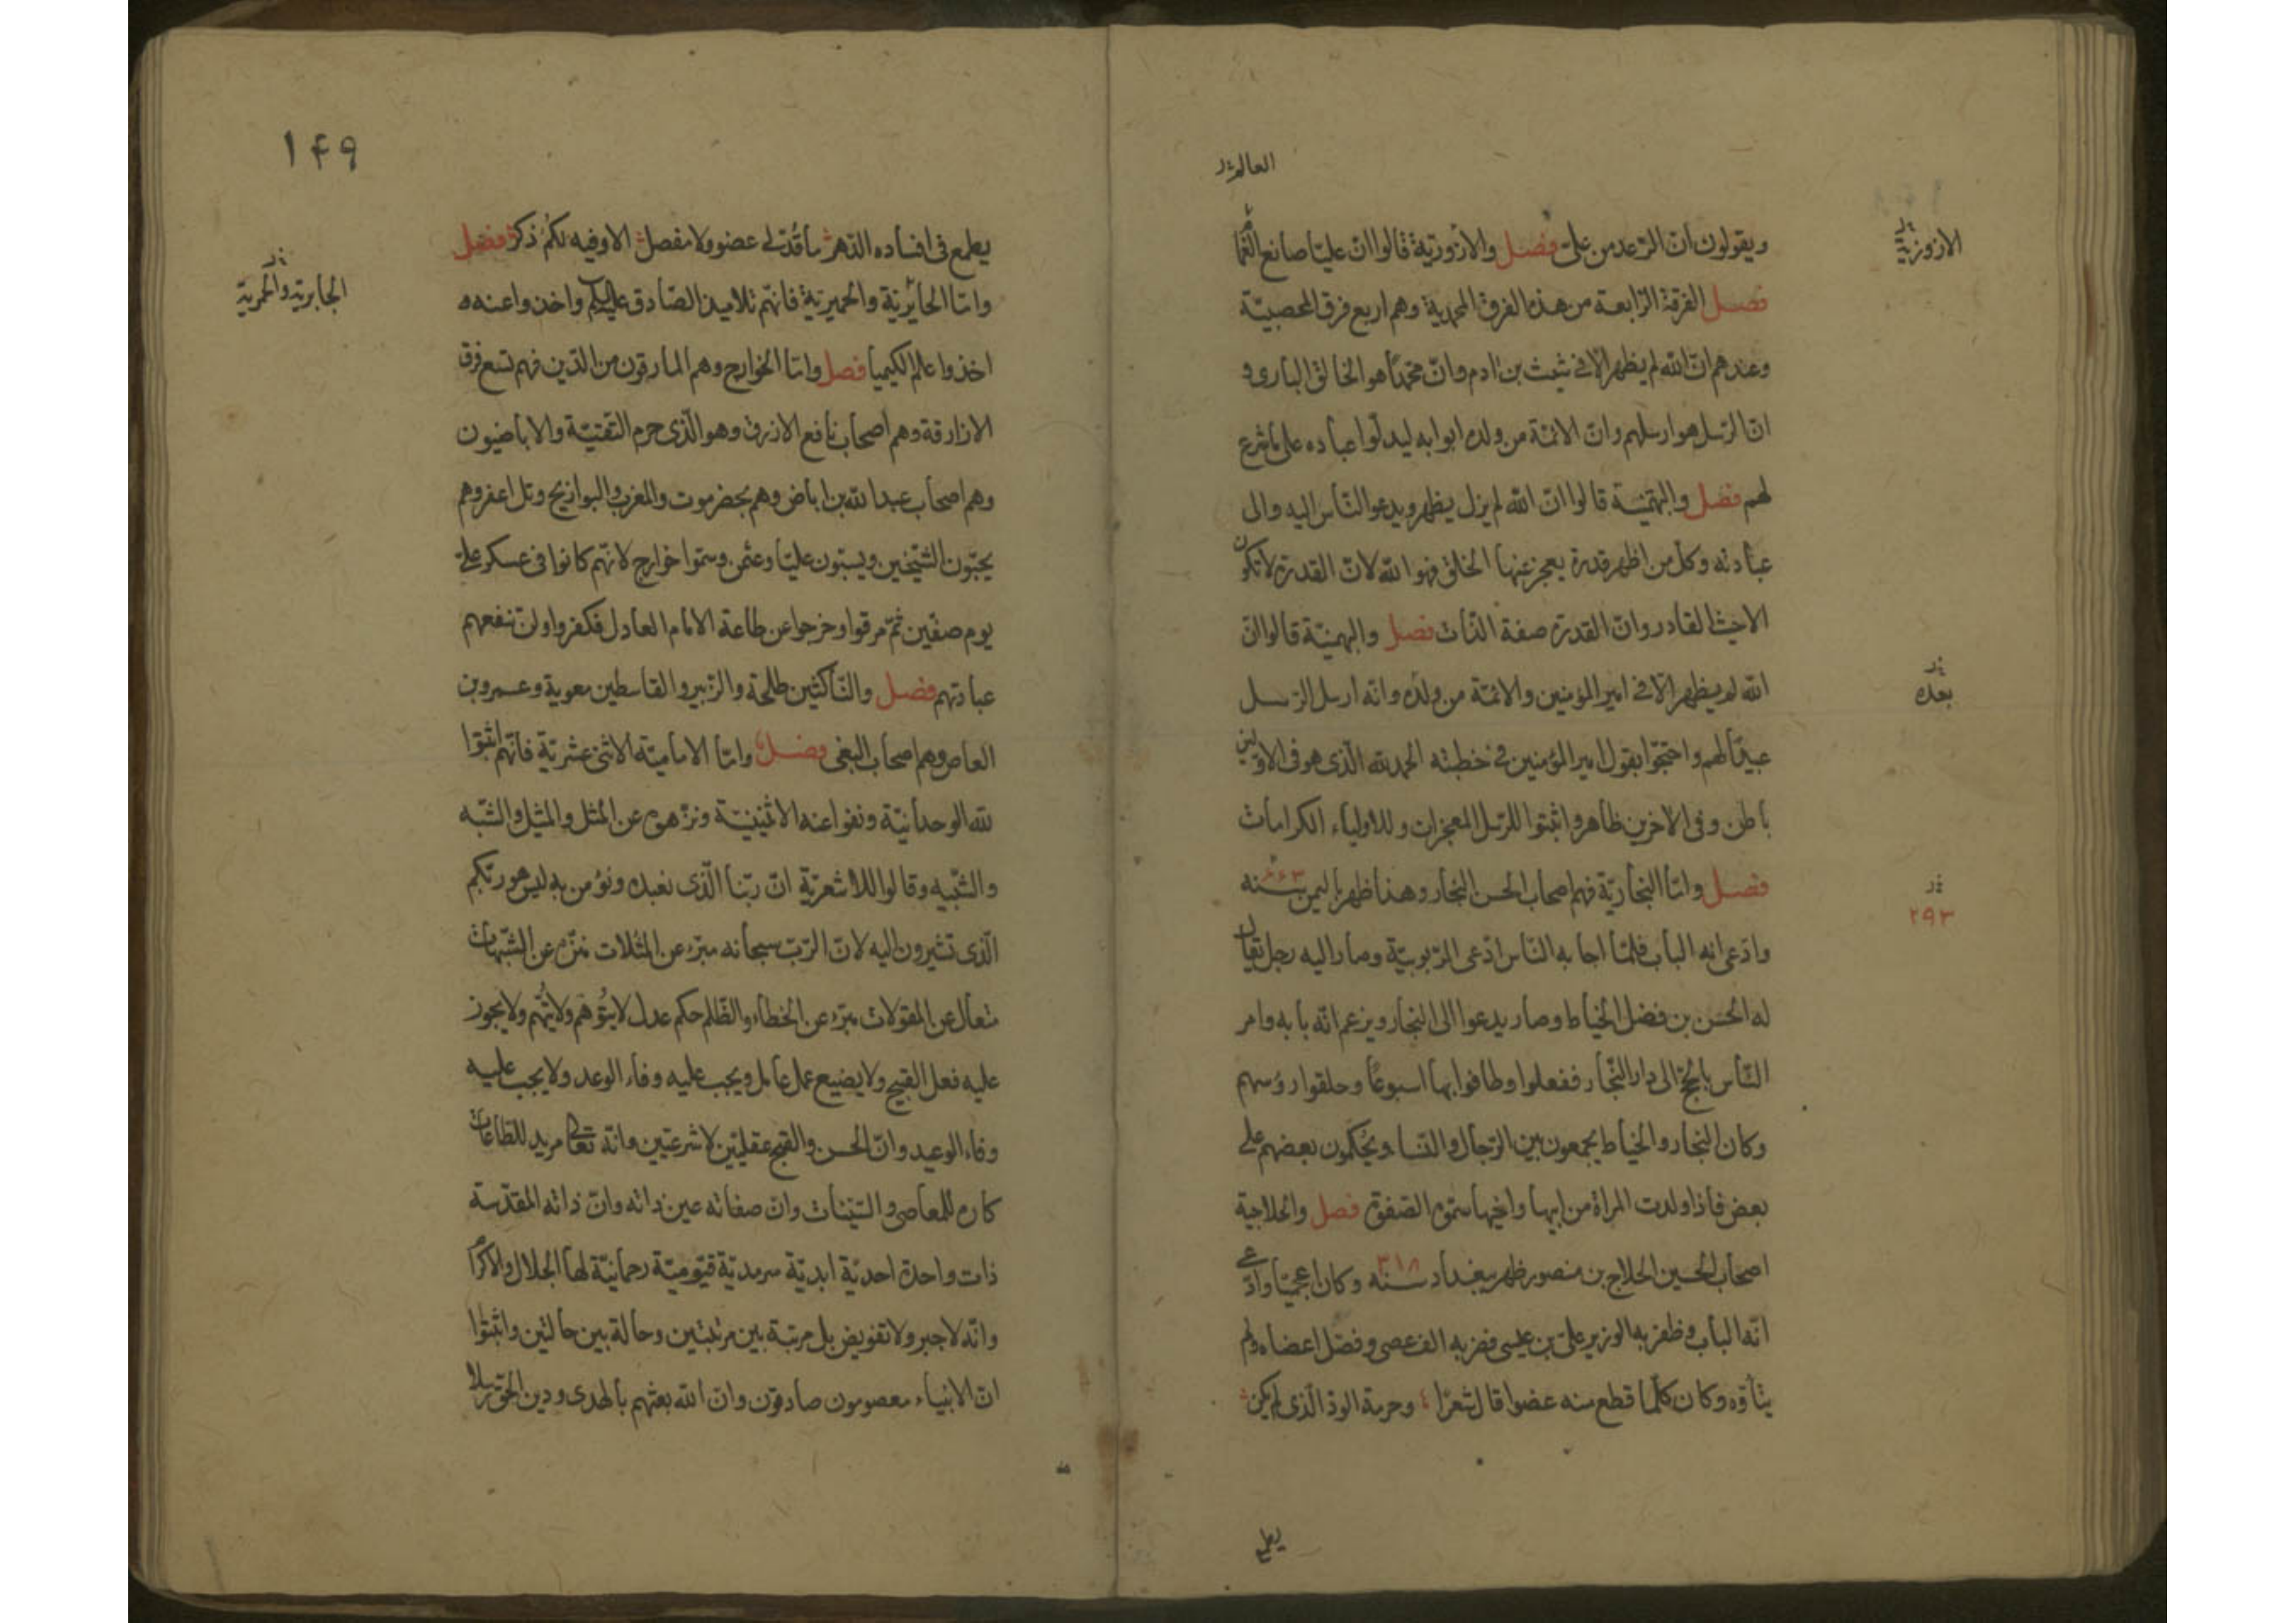 العالم نر
ويقولون ان الرعد من علىّ فصل والازورية قالوا انّ عليّا صانع
الازورية نر
فصل الفرقة الرّابعة من هذه الفرق المحمدية وهم اربع فرق المحصبيّة
وعندهم انّ الله لم يظهر الّا فى شيث بن ادم وانّ محمّدًا هو الخالق البارى و
انّ الرّسل هو ارسلهم وانّ الائمّة من ولده ابوابه ليدلّوا عباده على ما شرع
لهم فصل والبهمنيّة قالوا انّ الله لم يزل يظهر ويدعو النّاس اليه والى
عبادته وكل من اظهر قدرة يعجز عنها الخلق فهو الله لانّ القدرة لا تكون
الا حيث القادر وانّ القدرة صفة الذّات فصل والبهمنيّة قالوا انّ
الله لم يظهر الّا فى امير المؤمنين والائمّة من ولده وانّه ارسل الرّسل
نر بعده
عبيدًا لهم واحتجّوا بقول امير المؤمنين فى خطبته الحمد لله الّذى هو فى الاوّلين
باطن وفى الاخرين ظاهر واثبتوا للرّسل المعجزات وللاولياء الكرامات
فصل وامّا النجاريّة فهم اصحاب الحسن النجار وهذا ظهر باليمن سنه
نر ۲۹۳
وادّعى انه الباب فلمّا اجابه النّاس ادّعى الرّبوبيّة وصار اليه رجل يقال
له الحسن بن فضل الخياط وصار يدعوا الى النجار ويزعم انّه بابه وامر
النّاس بالحجّ الى دار النّجار ففعلوا وطافوا بها اسبوعًا وحلقوا رؤسهم
وكان النجار والخياط يجمعون بين الرّجال والنسا ويحكمون بعضهم على
بعض فاذا ولدت المراة من ابيها واخيها سمّوه الصفوة فصل والحلاجية
اصحاب الحسين الحلاج بن منصور ظهر ببغداد سنه ۳۱۸ وكان اعجميّا وادّعى
انّه الباب وظفر به الوزير على بن عيسى فضربه الف عصى وفصّل اعضاه ولم
يتأوّه وكان كلّما قطع منه عضوا قال شعرًا وحرمة الودّ الّذى لم يكن
يطمع
۱۴۹
يطمع فى افساده الدّهر ما قُدّ لى عضو ولا مفصل الا وفيه لكم ذكر فصل
وامّا الجائرية والحميرية فانّهم تلاميذ الصّادق عليه السلام واخذوا عنه ه
نر الجابرية والحمرية
اخذوا علم الكيميا فصل وامّا الخوارج وهم المارقون من الدّين فهم تسع فرق
الازارقة وهم اصحاب نافع الازرق وهو الّذى حرم التقيّة والاباضيون
وهم اصحاب عبد الله بن اباض وهم بحضرموت والمغرب والبوازيج وتل اعفر وهم
يحبّون الشّيخين ويسبّون عليّا وعثمن وسمّوا خوارج لانّهم كانوا فى عسكر علىّ
يوم صفّين ثمّ مرقوا وخرجوا عن طاعة الامام العادل فكفروا ولن تنفعهم
عبادتهم فصل والنّاكثين طلحة والزّبير والقاسطين معوية وعمرو بن
العاص وهم اصحاب البغى فصل وامّا الاماميّة الاثنى عشريّة فانّهم اثبتوا
لله الوحدانيّة ونفوا عنه الاثنينيّة ونزّهوه عن المثل والمثيل والشّبه
والشّبيه وقالوا للاشعريّة انّ ربّنا الّذى نعبده ونؤمن به ليس هو ربّكم
الّذى تشيرون اليه لانّ الرّبّ سبحانه مبرّء عن المثلات منزّه عن الشّبهات
متعال عن المقولات مبرّء عن الخطاء والظّلم حكم عدل لا يتوهّم ولا يُتّهم ولا يجوز
عليه فعل القبيح ولا يضيع عمل عامل ويجب عليه وفاء الوعد ولا يجب عليه
وفاء الوعيد وانّ الحسن والقبح عقليّين لا شرعيّين وانّه تعالى مريد للطّاعات
كاره للمعاصى والسّيّئات وانّ صفاته عين ذاته وانّ ذاته المقدّسة
ذات واحدة احديّة ابديّة سرمديّة قيّوميّة رحمانيّة لها الجلال والاكرام
وانّه لا جبر ولا تفويض بل مرتبة بين مرتبتين وحالة بين حالتين واثبتوا
انّ الانبياء معصومون صادقون وانّ الله بعثهم بالهدى ودين الحقّ رسلا